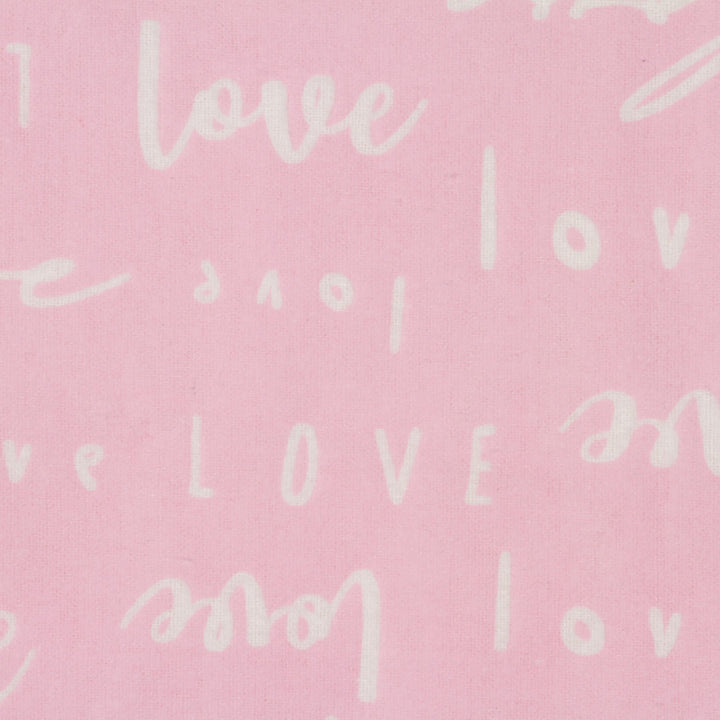 love
lov
e
love
ve LOVE
love
lov